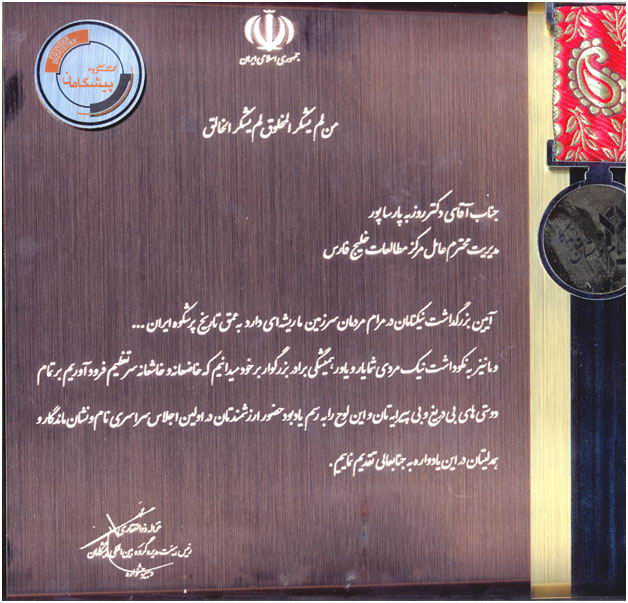 جمهوری اسلامی ایران
PIONEER INDUSTRY
گروه
پیشگامان
من لم یشکر المخلوق لم یشکر الخالق
جناب آقای دکتر روزبه پارساپور
مدیریت محترم عامل مرکز مطالعات خلیج فارس
آیین بزرگداشت نیکنامان در مرام مردمان سرزمین ما ریشه ای دارد به عمق تاریخ پرشکوه ایران ...
و ما نیز به نکوداشت نیک مردی شما یار و یاور همیشگی برادر بزرگوار بر خود میدانیم که خاضعانه و خاشعانه سر تعظیم فرود آوریم بر تمام
دوستی های بی دریغ و بی پیرایه تان و این لوح را به رسم یادبود حضور ارزشمندتان در اولین اجلاس سراسری نام و نشان ماندگار و
همدلیتان در این یادواره به جنابعالی تقدیم نماییم.
ذوالفقاری
رئیس هیئت مدیره گروه بین المللی پیشگامان
دبیر جشنواره